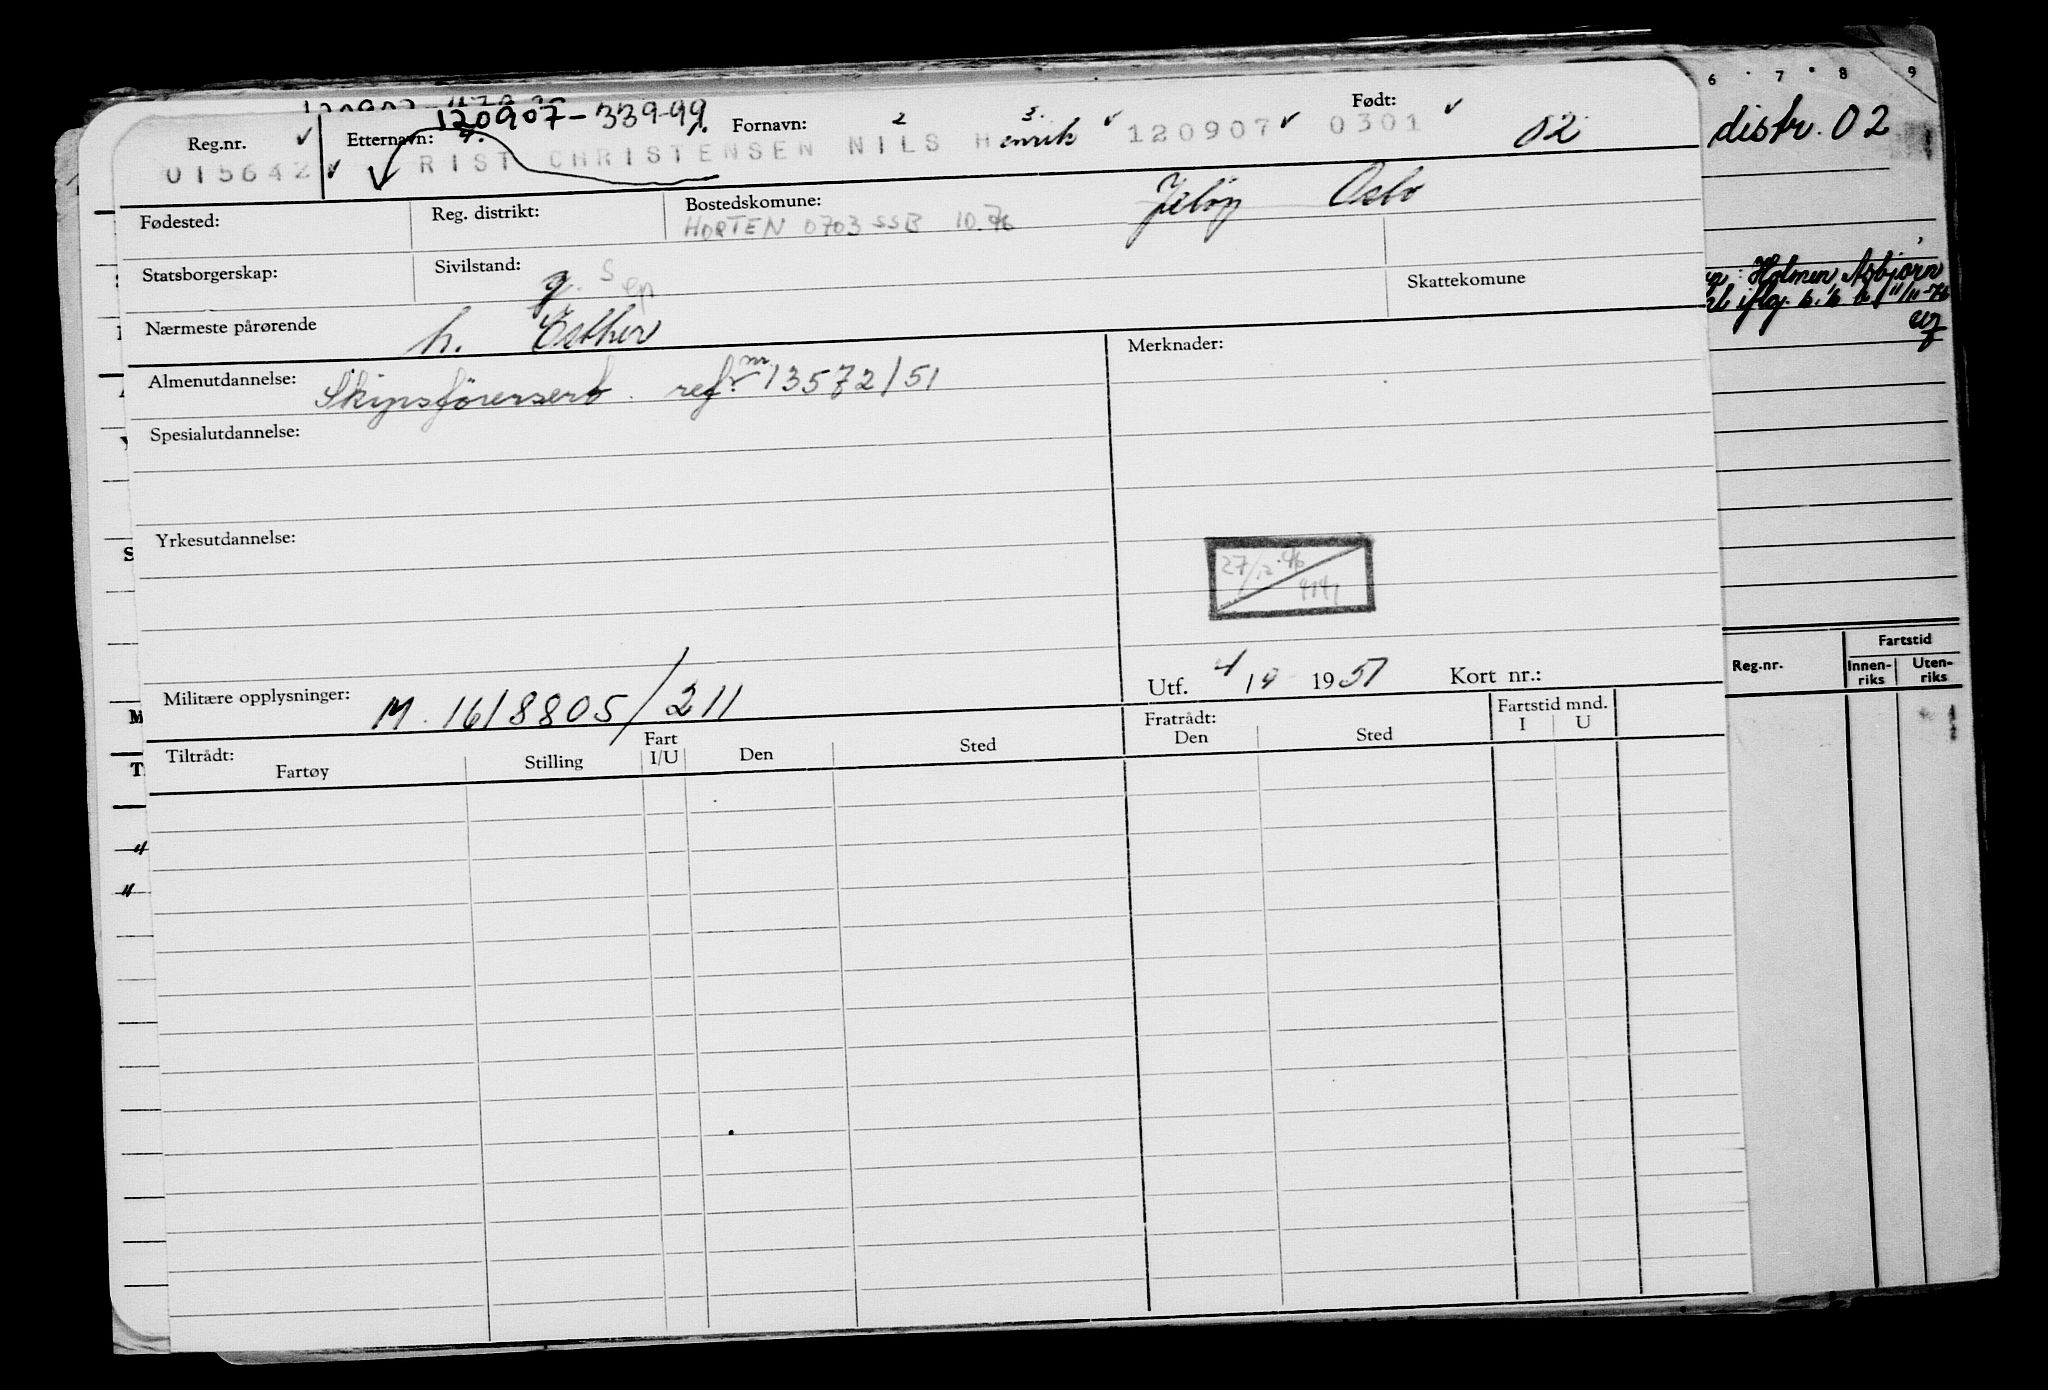 6 7 8 9
120907-33999
Reg.nr. Etternavn: 4. 1. Fornavn: 2 3. Født:
015642 RIST CHRISTENSEN NILS Henrik 120907 0301 02
distr. 02
Fødested: Reg. distrikt: Bostedskomune: Jeløy Oslo
HORTEN 0703 SSB 10.76
Statsborgerskap: Sivilstand: g. s Skattekomune
Holmen Asbjørn
Nærmeste pårørende h. Esther
Almenutdannelse: Skipsførersert. ref. nr. 13572/51 Merknader:
Spesialutdannelse:
Yrkesutdannelse:
27/12.76
Fartstid
Reg.nr. Innen-riks Uten-riks
Militære opplysninger: M. 1618805/211 Utf. 4/10 1951 Kort nr.:
Tiltrådt: Fratrådt: Fartstid mnd.
Fartøy Stilling Fart I/U Den Sted Den Sted I U